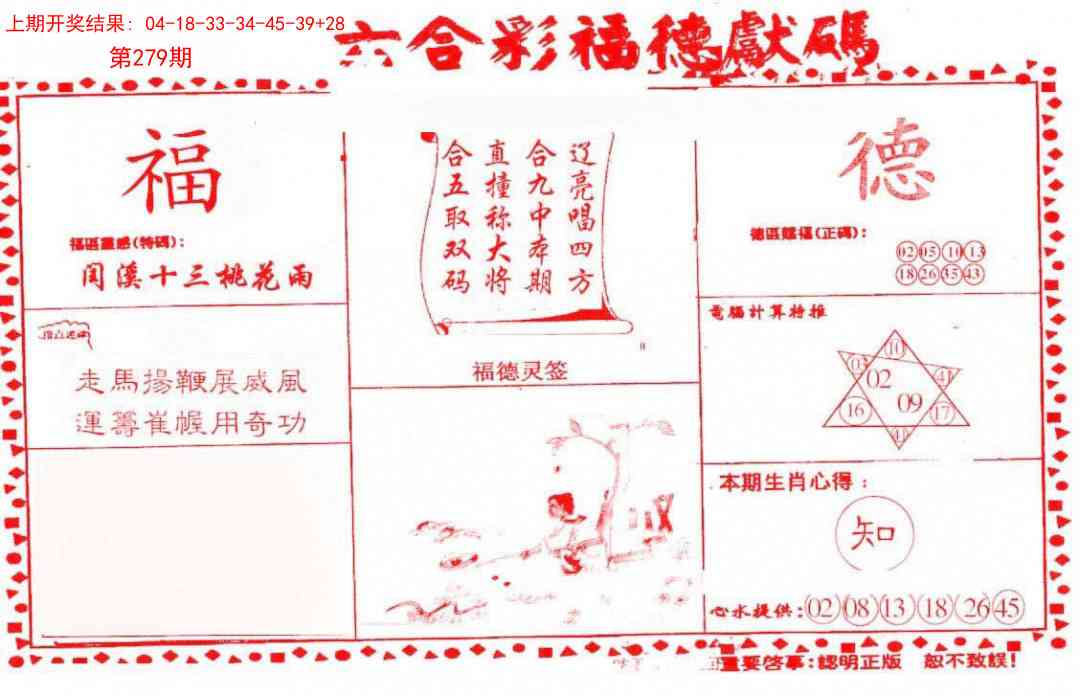 上期开奖结果：04-18-33-34-45-39+28
第279期
六合彩福德獻碼
福
福區靈感(特碼)：
閏溪十三桃花雨
走馬揚鞭展威風
運籌崔幄用奇功
辽亮唱四方
合九中本期
直撞称大将
合五取双码
福德灵签
德
德區賜福(正碼)：
02 05 10 13
18 26 35 43
電腦計算特推
10
03 02 41
16 09 17
41
本期生肖心得：
知
心水提供：02 08 13 18 26 45
重要啓事：認明正版 恕不致誤！